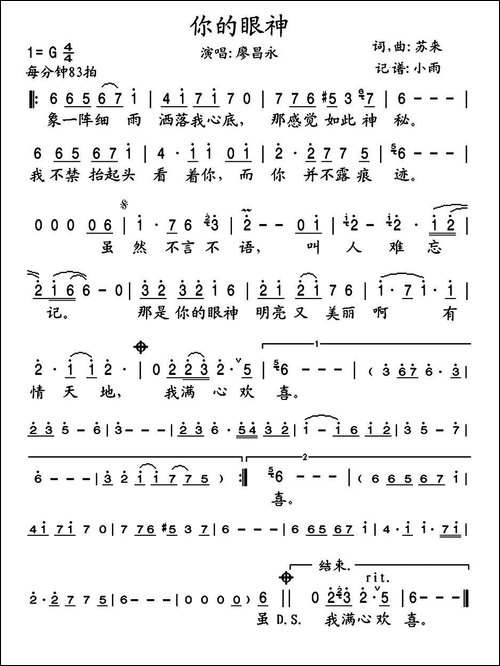 你的眼神
1= G 4/4 演唱:廖昌永 词,曲:苏来
每分钟83拍 记谱:小雨
‖: 6 6 5 6 7 i | 4 i 7 i 7 0 | 7 7 6 #5 3 6 7 | 6 - - - |
象一阵细 雨 洒落我心底, 那感觉 如此神 秘。
6 6 5 6 7 i | 4 · i i 0 i | 2 · 2 7 7 5 i | 6 - - - |
我不禁抬起头 看 着你,而 你 并不露痕 迹。
0 0 0 0 6 | i · 7 6 3 | 2 - - 0 i | 2 - 2 - i 2 |
虽 然 不言不 语, 叫 人 难忘
2 i 6 6 - 0 | 3 2 3 2 i 6 | 2 i 2 i 7 6 | i · 7 i · i |
记。 那是你的眼神 明亮又 美丽 啊 有
2 · i i 2 | 2 - - · | 0 2 2 3 2 5 | 6 - - | ( 3 6 7 6 i |
情 天 地, 我满心欢 喜。
2 3 2 3 5 - 6 | 3 - - - | 2 3 2 3 · 6 5 4 3 | i · 6 i i 2 i | 3 5 - 7 |
6 - - - | 3 2 i i 7 7 5 ) :‖ 6 - - - | ( 6 6 5 6 7 i |
喜。
4 i 7 i 7 0 | 7 7 6 #5 3 6 7 | 6 - - - | 6 6 5 6 7 i | 4 · i · 7 i |
结束. rit.
2 · 2 7 7 5 | 6 - - - | 0 0 0 0 ) 6 ‖ 0 2 2 3 2 5 | 6 - - - ‖
虽 D.S. 我满心欢 喜。